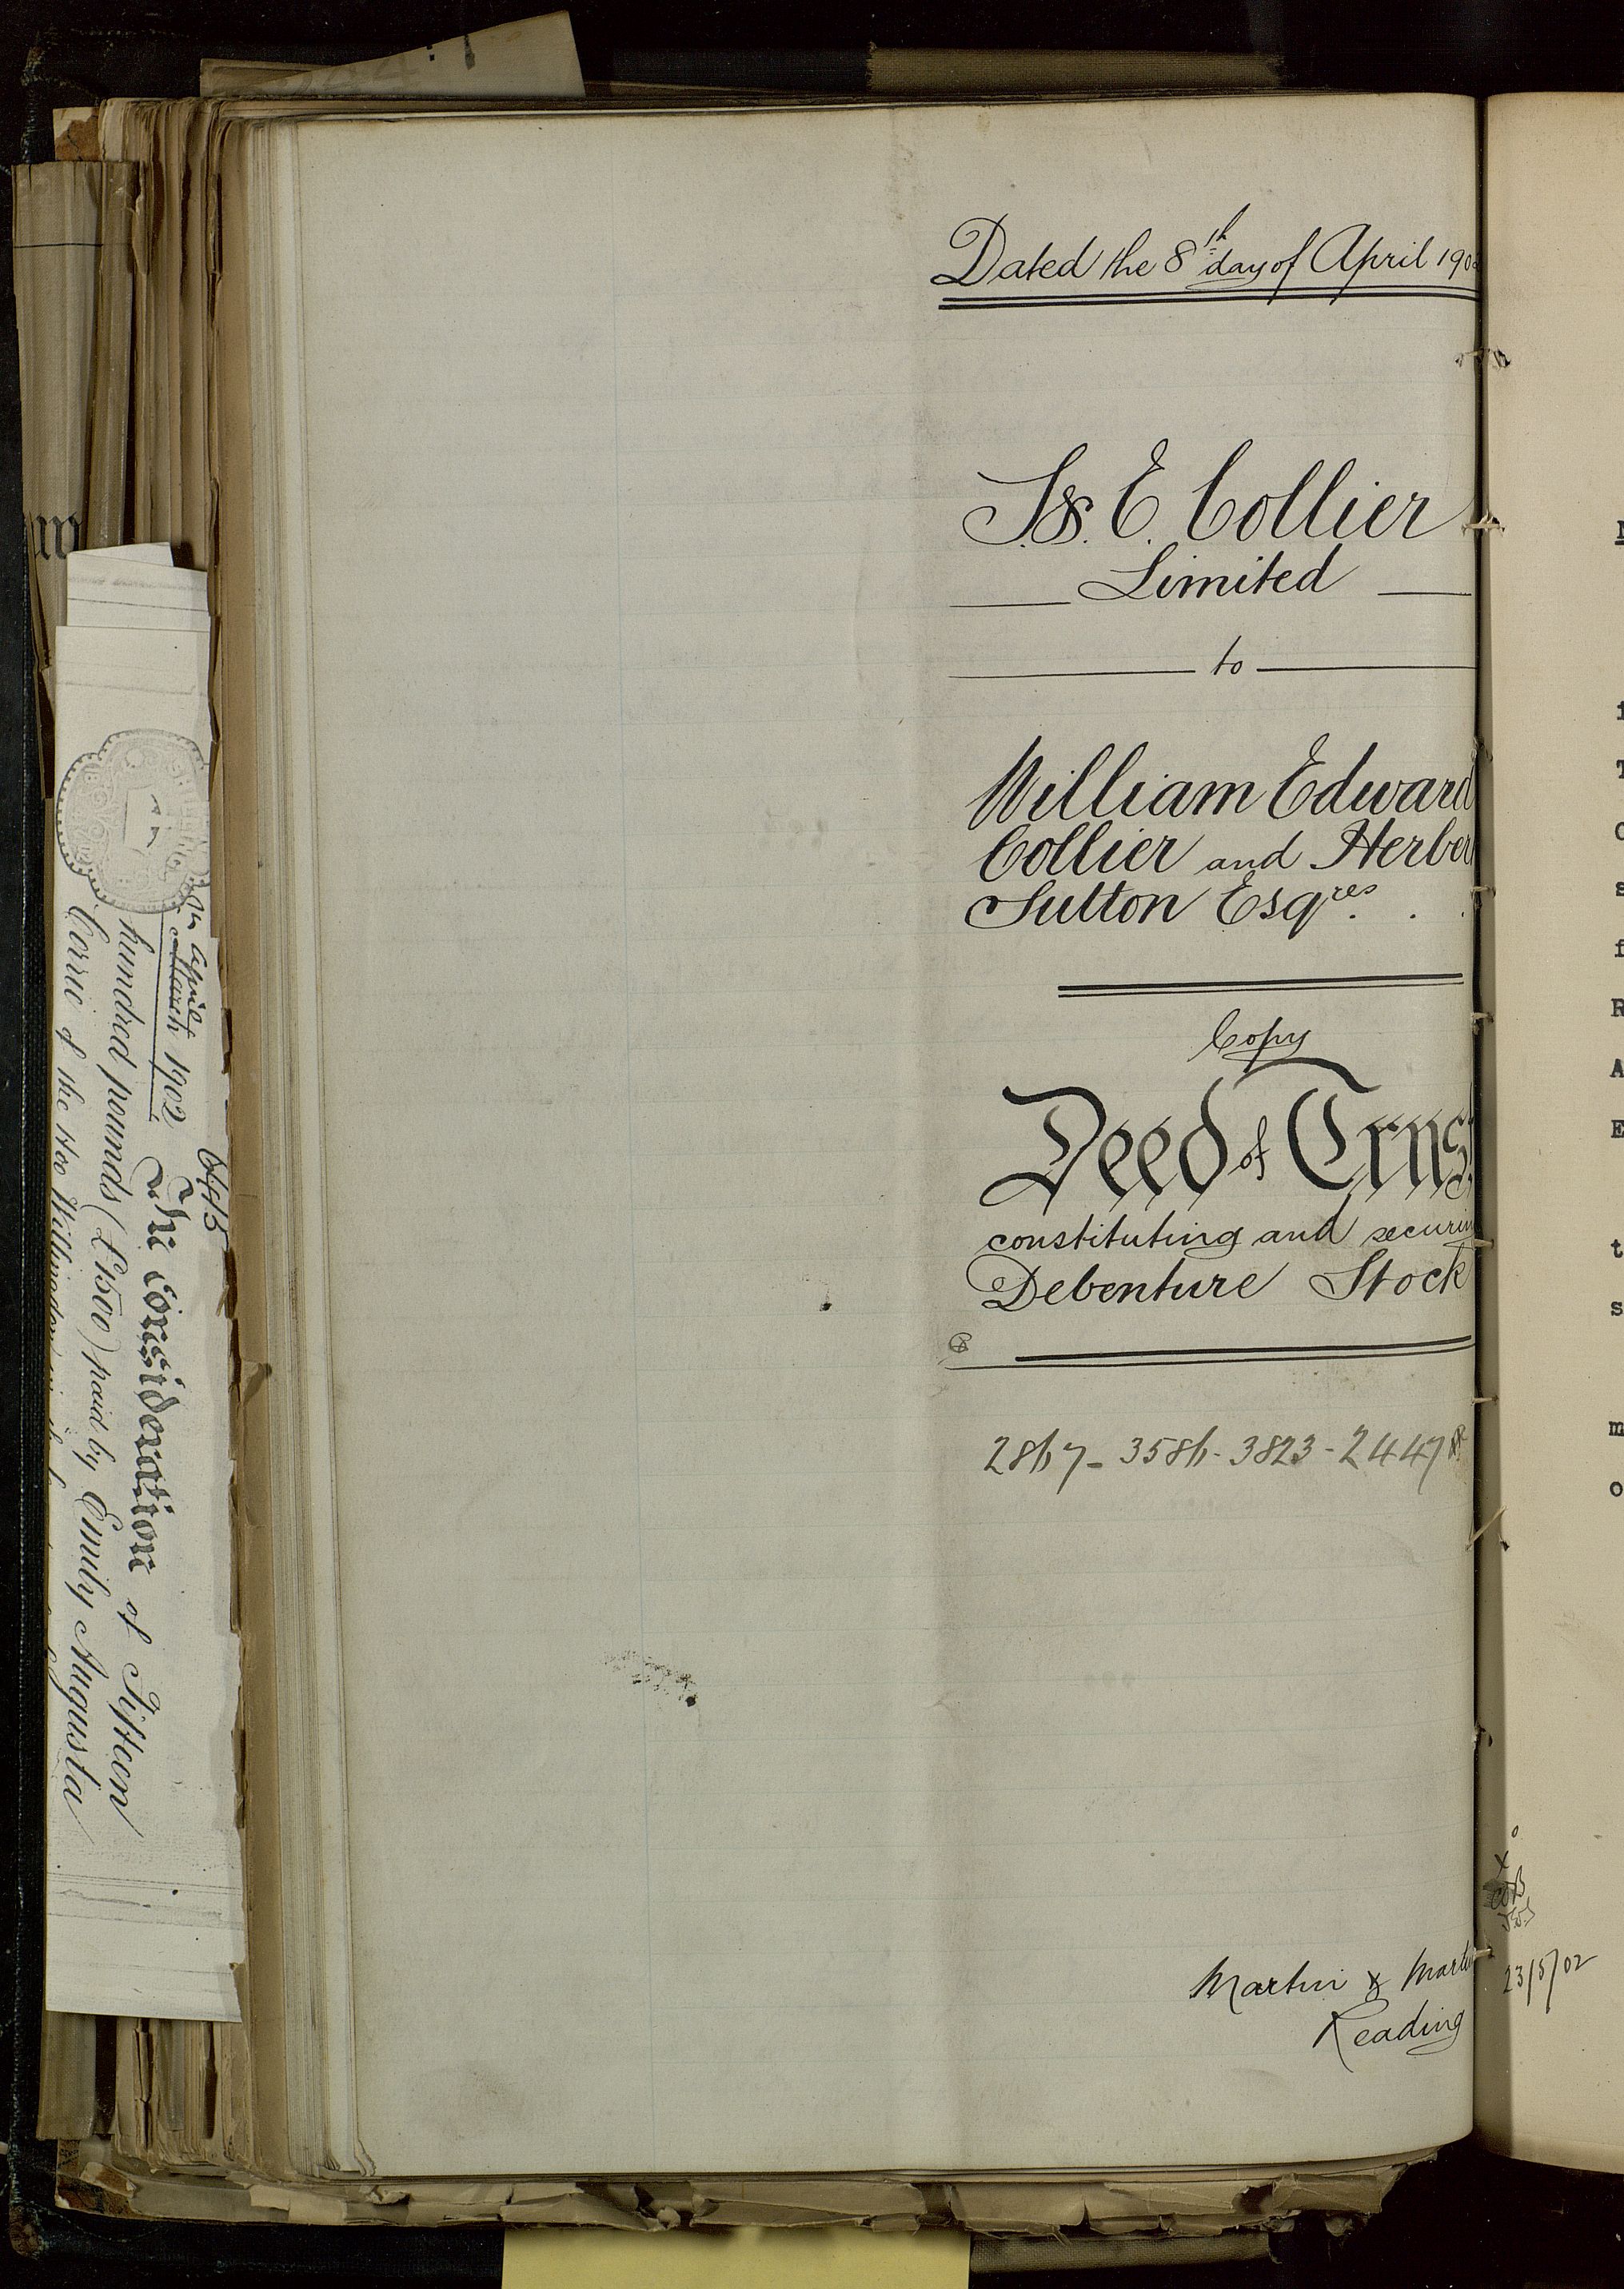 Dated the 8th day of April 190
S. & E. Collier
Limited
to
William Edward
Collier and Herber
Sutton Esqres.
Copy
Deed of Trus
constituting and securin
Debenture Stock
2867 - 3586 - 3823 - 24478
Martin & Marti
Reading
23/5/02
April
March 1902
The Consideration of Fifteen
hundred pounds (£1500) paid by Emily Augusta
of the